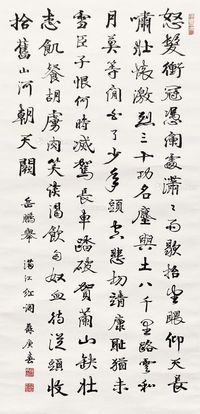 怒髮衝冠憑闌處瀟瀟雨歇抬望眼仰天長
嘯壯懷激烈三十功名塵與土八千里路雲和
月莫等閒白了少年頭空悲切靖康耻猶未
雪臣子恨何時滅駕長車踏破賀蘭山缺壯
志飢餐胡虜肉笑談渴飲匈奴血待從頭收
拾舊山河朝天闕
岳鵬舉 滿江紅詞